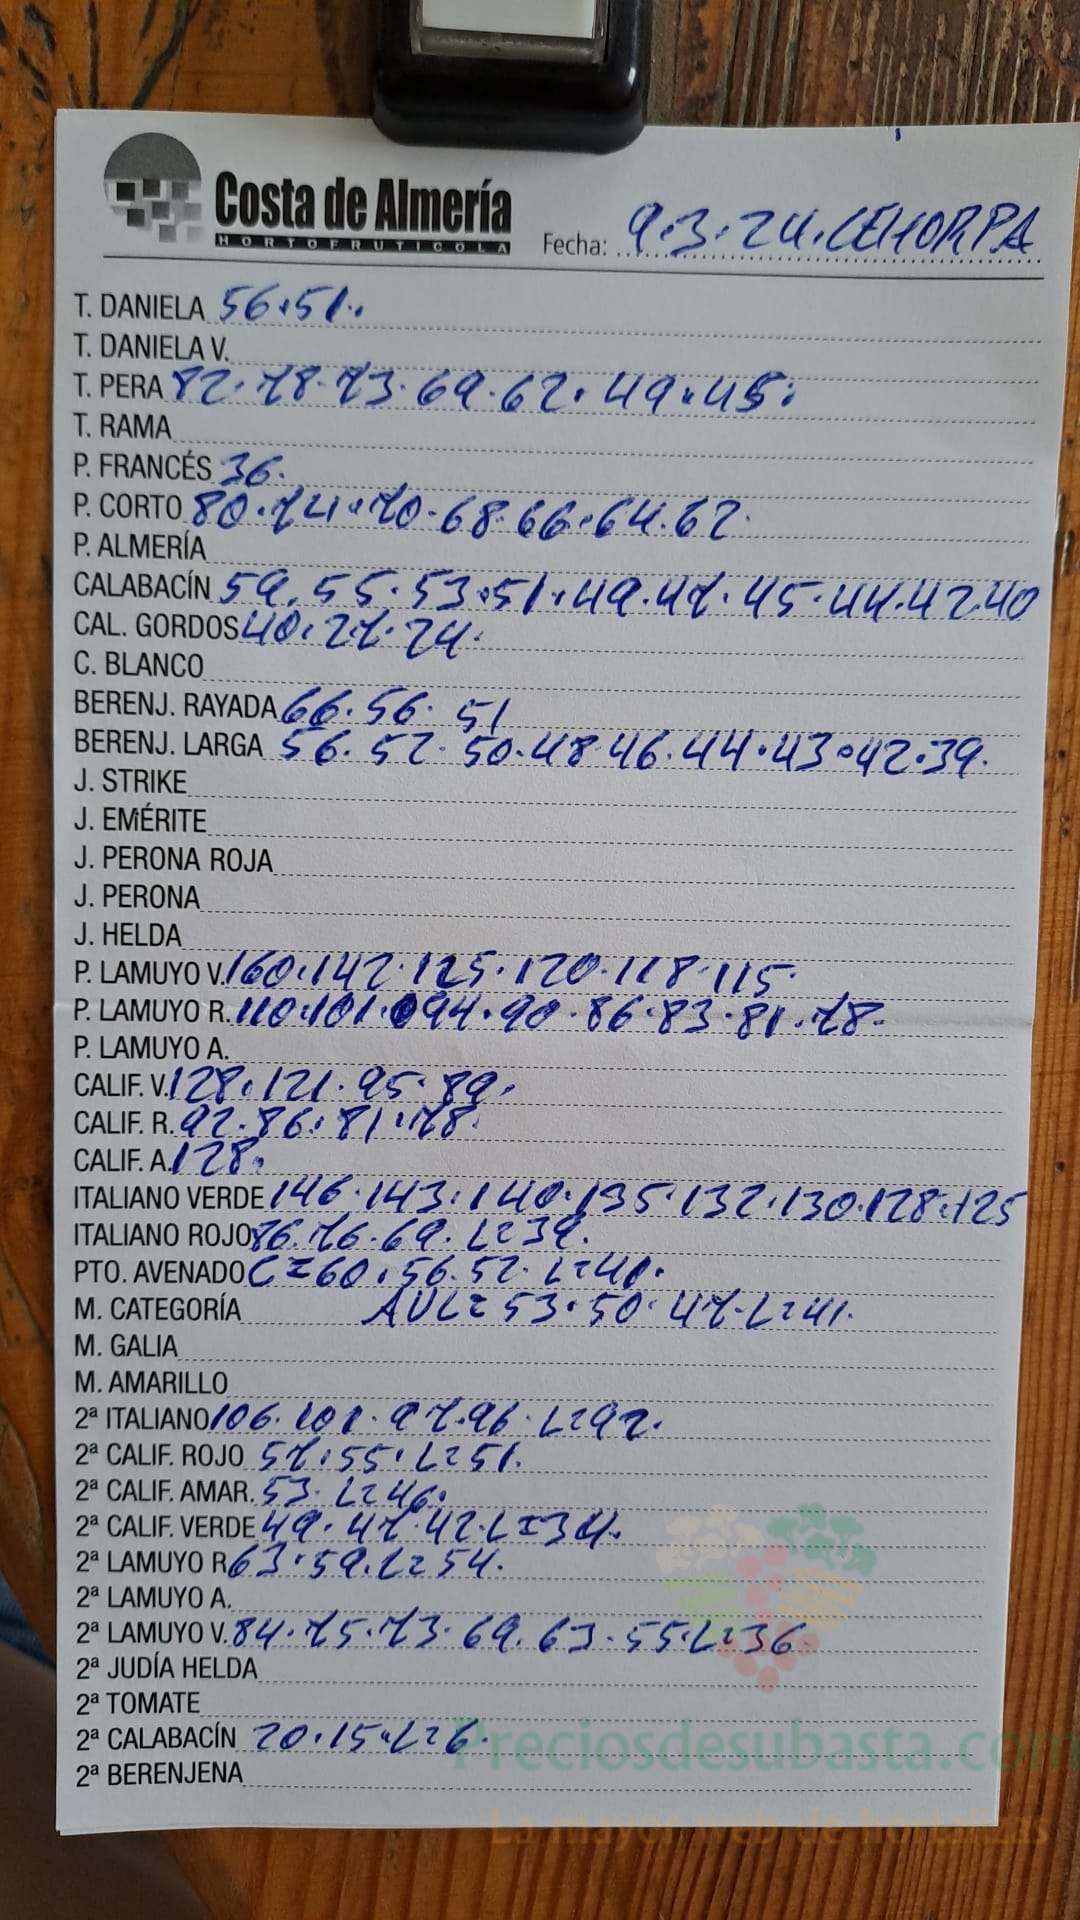 Costa de Almería
HORTOFRUTICOLA
Fecha: 9.3.24.CEHORPA
T. DANIELA 56.51.
T. DANIELA V.
T. PERA 82.78.73.69.62.49.45.
T. RAMA
P. FRANCÉS 36.
P. CORTO 80.74.70.68.66.64.62.
P. ALMERÍA
CALABACÍN 59.55.53.51.49.47.45.44.42.40
CAL. GORDOS 40.27.24.
C. BLANCO
BERENJ. RAYADA 66.56.51
BERENJ. LARGA 56.52.50.48.46.44.43.42.39.
J. STRIKE
J. EMÉRITE
J. PERONA ROJA
J. PERONA
J. HELDA
P. LAMUYO V. 160.142.125.120.118.115.
P. LAMUYO R. 110.101.94.90.86.83.81.78.
P. LAMUYO A.
CALIF. V. 128.121.95.89.
CALIF. R. 92.86.81.78.
CALIF. A. 128.
ITALIANO VERDE 146.143.140.135.132.130.128.125
ITALIANO ROJO 86.76.69.L=39.
PTO. AVENADO C=60.56.52.L=40.
M. CATEGORÍA AVL=53.50.47.L=41.
M. GALIA
M. AMARILLO
2ª ITALIANO 106.101.97.96.L=92.
2ª CALIF. ROJO 57.55.L=51.
2ª CALIF. AMAR. 53.L=46.
2ª CALIF. VERDE 49.47.42.L=34.
2ª LAMUYO R 63.59.L=54.
2ª LAMUYO A.
2ª LAMUYO V. 84.75.73.69.63.55.L=36
2ª JUDÍA HELDA
2ª TOMATE
2ª CALABACÍN 20.15.L=6.
Preciosdesubasta.com
2ª BERENJENA
La mayor web de hortalizas